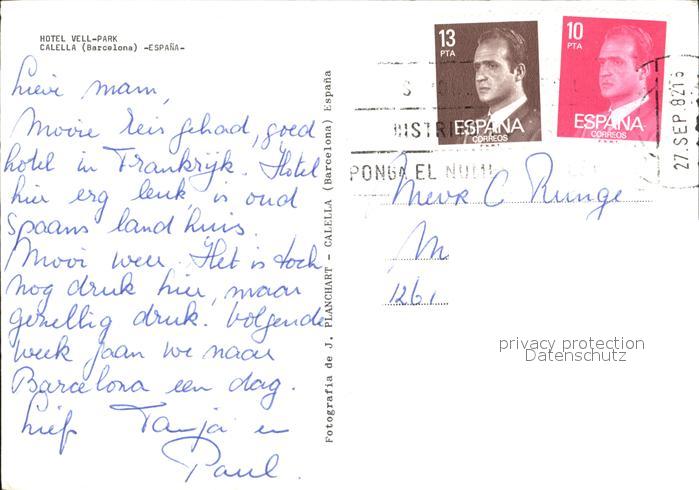 HOTEL VELL-PARK
CALELLA (Barcelona) -ESPAÑA-
Lieve mam,
Mooie reis gehad, goed
hotel in Frankryk. Hotel
hier erg leuk, is oud
Spaans landhuis.
Mooi weer. Het is toch
nog druk hier, maar
gezellig druk. Volgende
week gaan we naar
Barcelona een dag.
Liefs Tanja en
Paul.
Fotografía de J. PLANCHART - CALELLA (Barcelona) España
13
PTA
ESPAÑA
CORREOS
10
PTA
ESPAÑA
CORREOS
DISTRI
PONGA EL NUM
27.SEP.82
Mevr C Runge
1261
privacy protection
Datenschutz